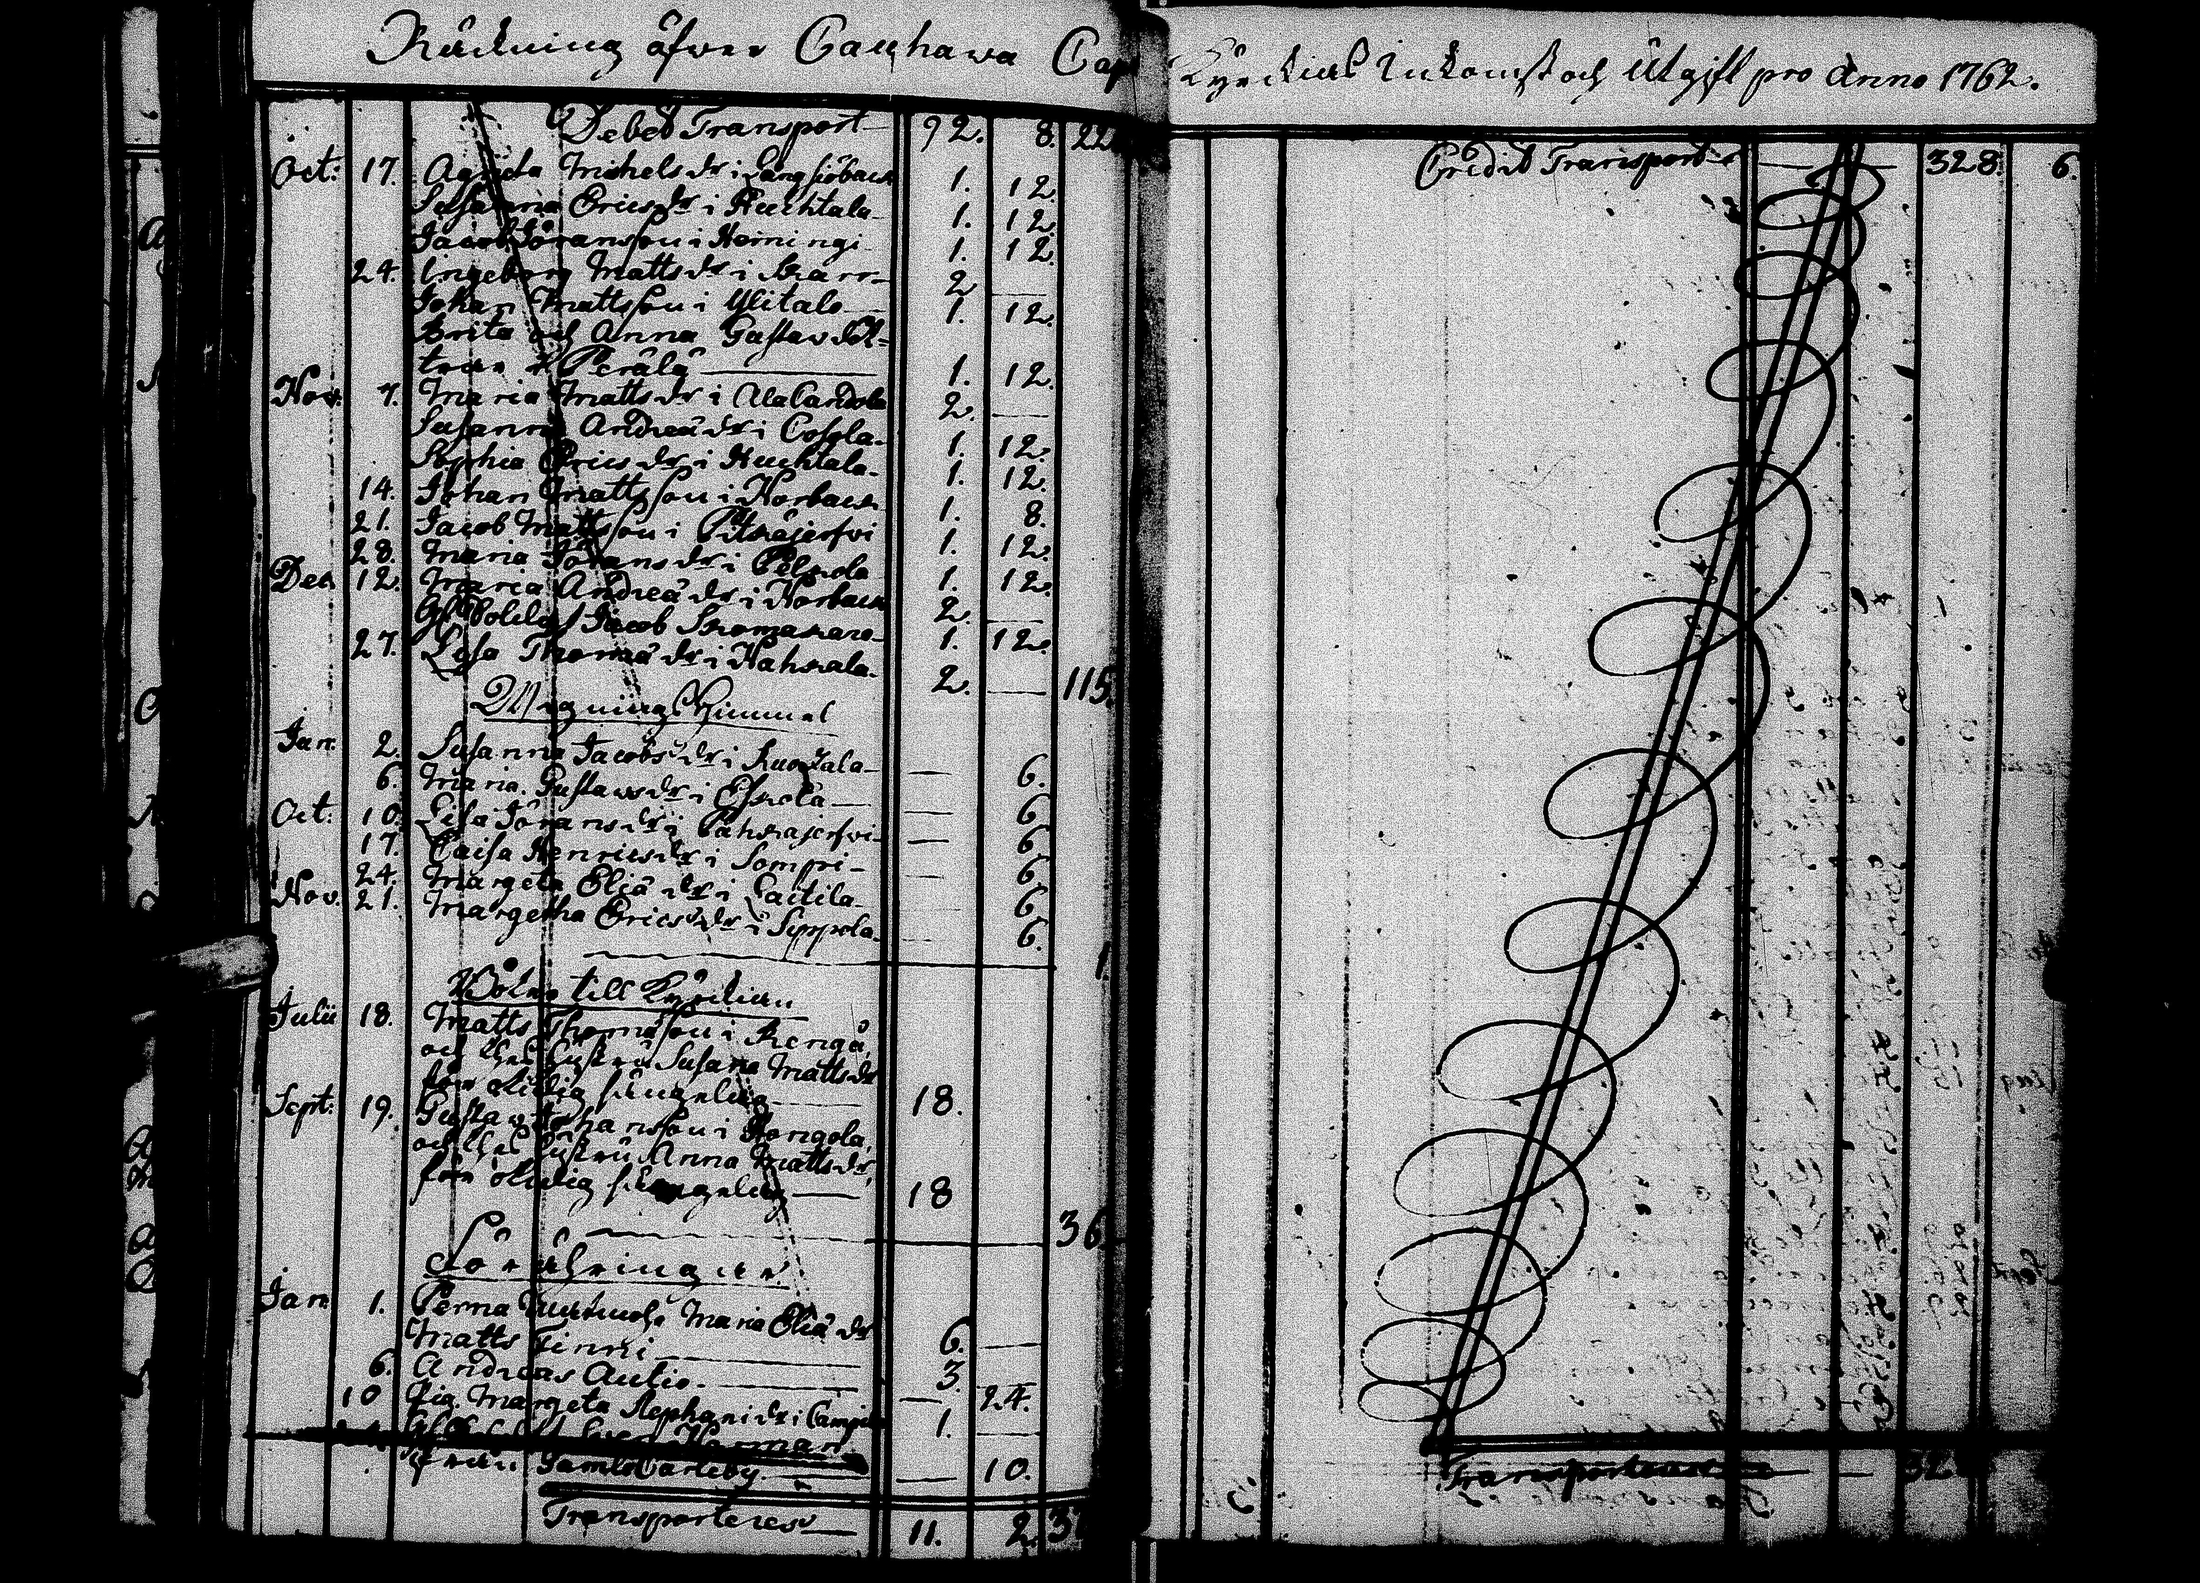 Räckning öfver Cauhawa Cap
Kyrckias Inkomst och Utgift pro Anno 1762.
Debet Transport 92. 8. 22
Oct: 17. Agneta Michels dr i Långsiöback 1. 12.
Susanna Erics dr i Ruchtala 1. 12.
Jacob Göransson i Hemingi 1. 12.
24. Ingeborg Matts dr i Skarr 2
Johan Mattsson i Ylitalo 1. 12.
Brita och Anna Gustavs döt=
trar i Perälä 1. 12.
Nov: 7. Maria Matts dr i AlaCandola 2.
Susanna Andreä dr i Cosola 1. 12.
Sophia Erics dr i Ruchtala 1. 12.
14. Johan Mattsson i Norback 1. 8.
21. Jacob Mattsson i Pitkäjerfvi 1. 12.
28. Maria Görans dr i Pelkola 1. 12.
Dec 12. Maria Andreä dr i Norback 2.
Jacob Skomakare 1. 12.
27. Lisa Thomä dr i Kahkala 2. 115.
Wigning Himmel
Jan: 2. Susanna Jacobs dr i 6.
6. Maria Gustavs dr i Eskola 6.
Oct: 10. Lisa Görans dr i Pahkajerfvi 6
17. Caisa Henrics dr i Sompi 6
24. Margeta Eliä dr i Cactila 6
Nov. 21. Margetha Erics dr i Syppola 6. 1
Böter till Kyrckian
Julii 18. Matts Thomasson i Kengä,
och thes hustru Susana Matts dr
för otidig sängelag 18.
Sept: 19. Gustav Johansson i Kongola,
och thes hustru Anna Matts dr,
för otidig sängelag 18
36
Förähringar
Jan 1. Perna Maria Eliä dr 6.
Matts Finni 3.
6. Andreas Aulio 24.
10 Pig. Margeta Stephani dr i Campi 1.
från GamleCarleby 10.
Transporteras 11. 2. 37
Credit Transport 328. 6.
Transporteras 32